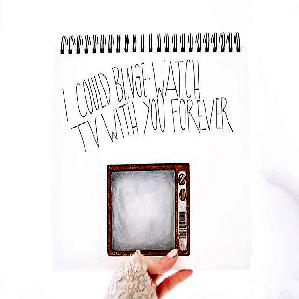 I COULD BINGE-WATCH
TV WITH YOU FOREVER